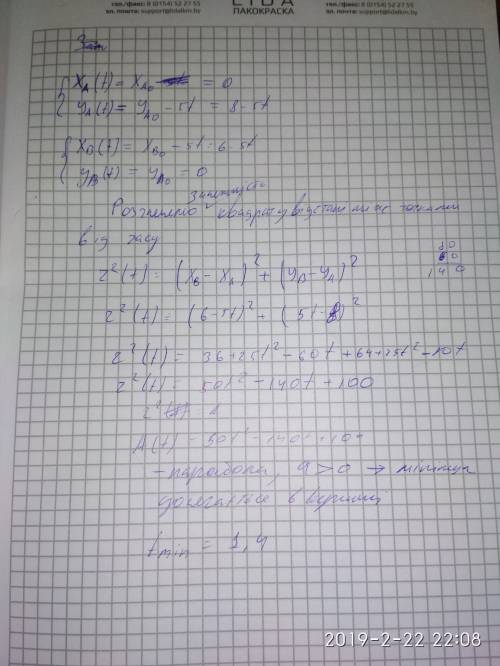 тел./факс: 8 (0154) 52 27 55
эл. почта: support@lidalkm.by
LIDA
ЛАКОКРАСКА
тел./факс: 8 (0154) 52 27 55
эл. почта: support@lidalkm.by
X_A(t) = X_A0 = 0
y_A(t) = y_A0 - 5t = 8 - 5t
X_B(t) = X_B0 - 5t = 6 - 5t
y_B(t) = y_A0 = 0
залежність
Розглянемо квадрату відстані між точками
від часу
80
60
140
r²(t) = (X_B - X_A)² + (y_B - y_A)²
r²(t) = (6-5t)² + (5t-8)²
r²(t) = 36+25t² - 60t + 64+25t² - 80t
r²(t) = 50t² - 140t + 100
A(t) = 50t² - 140t + 100
- парабола, a > 0 → мінімум
досягається в вершині
t_min = 1,4
2019-2-22 22:08